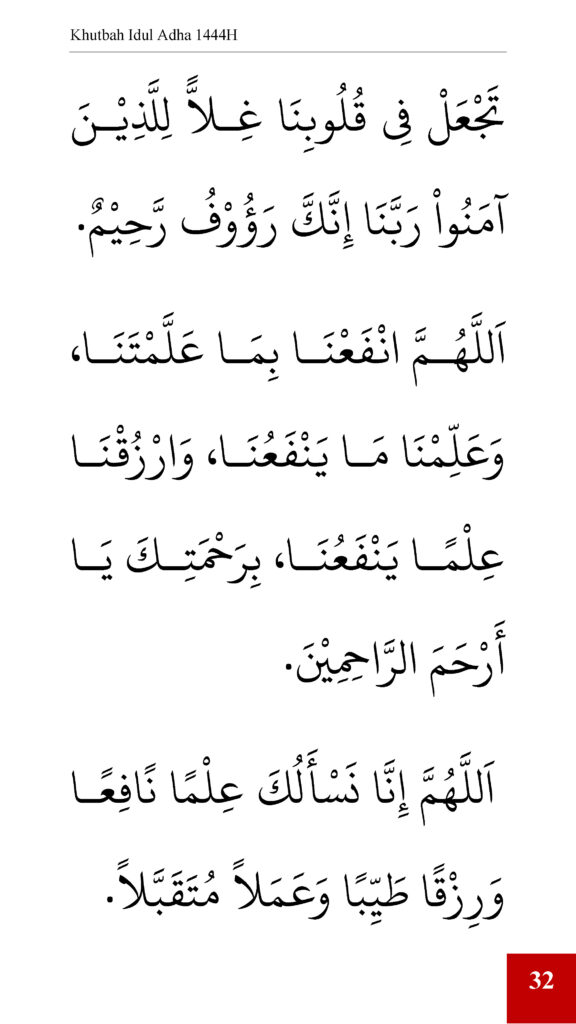 Khutbah Idul Adha 1444H
تَجْعَلْ فِى قُلُوبِنَا غِــلاًّ لِلَّذِيْــنَ
آمَنُواْ رَبَّنَا إِنَّكَّ رَؤُوْفُ رَّحِيْمٌ.
اَللَّهُــمَّ انْفَعْنَــا بِمَــا عَلَّمْتَنَــا،
وَعَلِّمْنَا مَــا يَنْفَعُنَــا، وَارْزُقْنَــا
عِلْمًــا يَنْفَعُنَــا، بِرَحْمَتِــكَ يَــا
أَرْحَمَ الرَّاحِمِيْنَ.
اَللَّهُمَّ إِنَّا نَسْأَلُكَ عِلْمًا نًافِعًــا
وَرِزْقًا طَيِّبًا وَعَمَلاً مُتَقَبَّلاً.
32